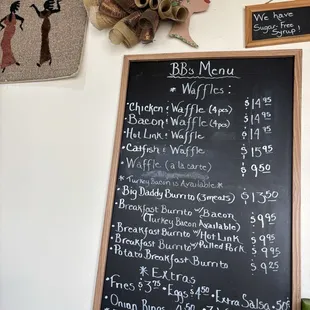 We have
Sugar-Free
Syrup!
BB's Menu
* Waffles:
• Chicken & Waffle (4pcs) $14.95
• Bacon & Waffle (4pcs) $14.95
• Hot Link & Waffle $14.95
• Catfish & Waffle $15.95
• Waffle (a la carte) $9.50
* Turkey Bacon is Available *
• Big Daddy Burrito (3 meats) $13.50
• Breakfast Burrito w/Bacon $9.95
(Turkey Bacon Available)
• Breakfast Burrito w/Hot Link $9.95
• Breakfast Burrito w/Pulled Pork $9.95
• Potato Breakfast Burrito $9.25
* Extras
• Fries $3.75 • Eggs $4.50 • Extra Salsa
• Onion Rings